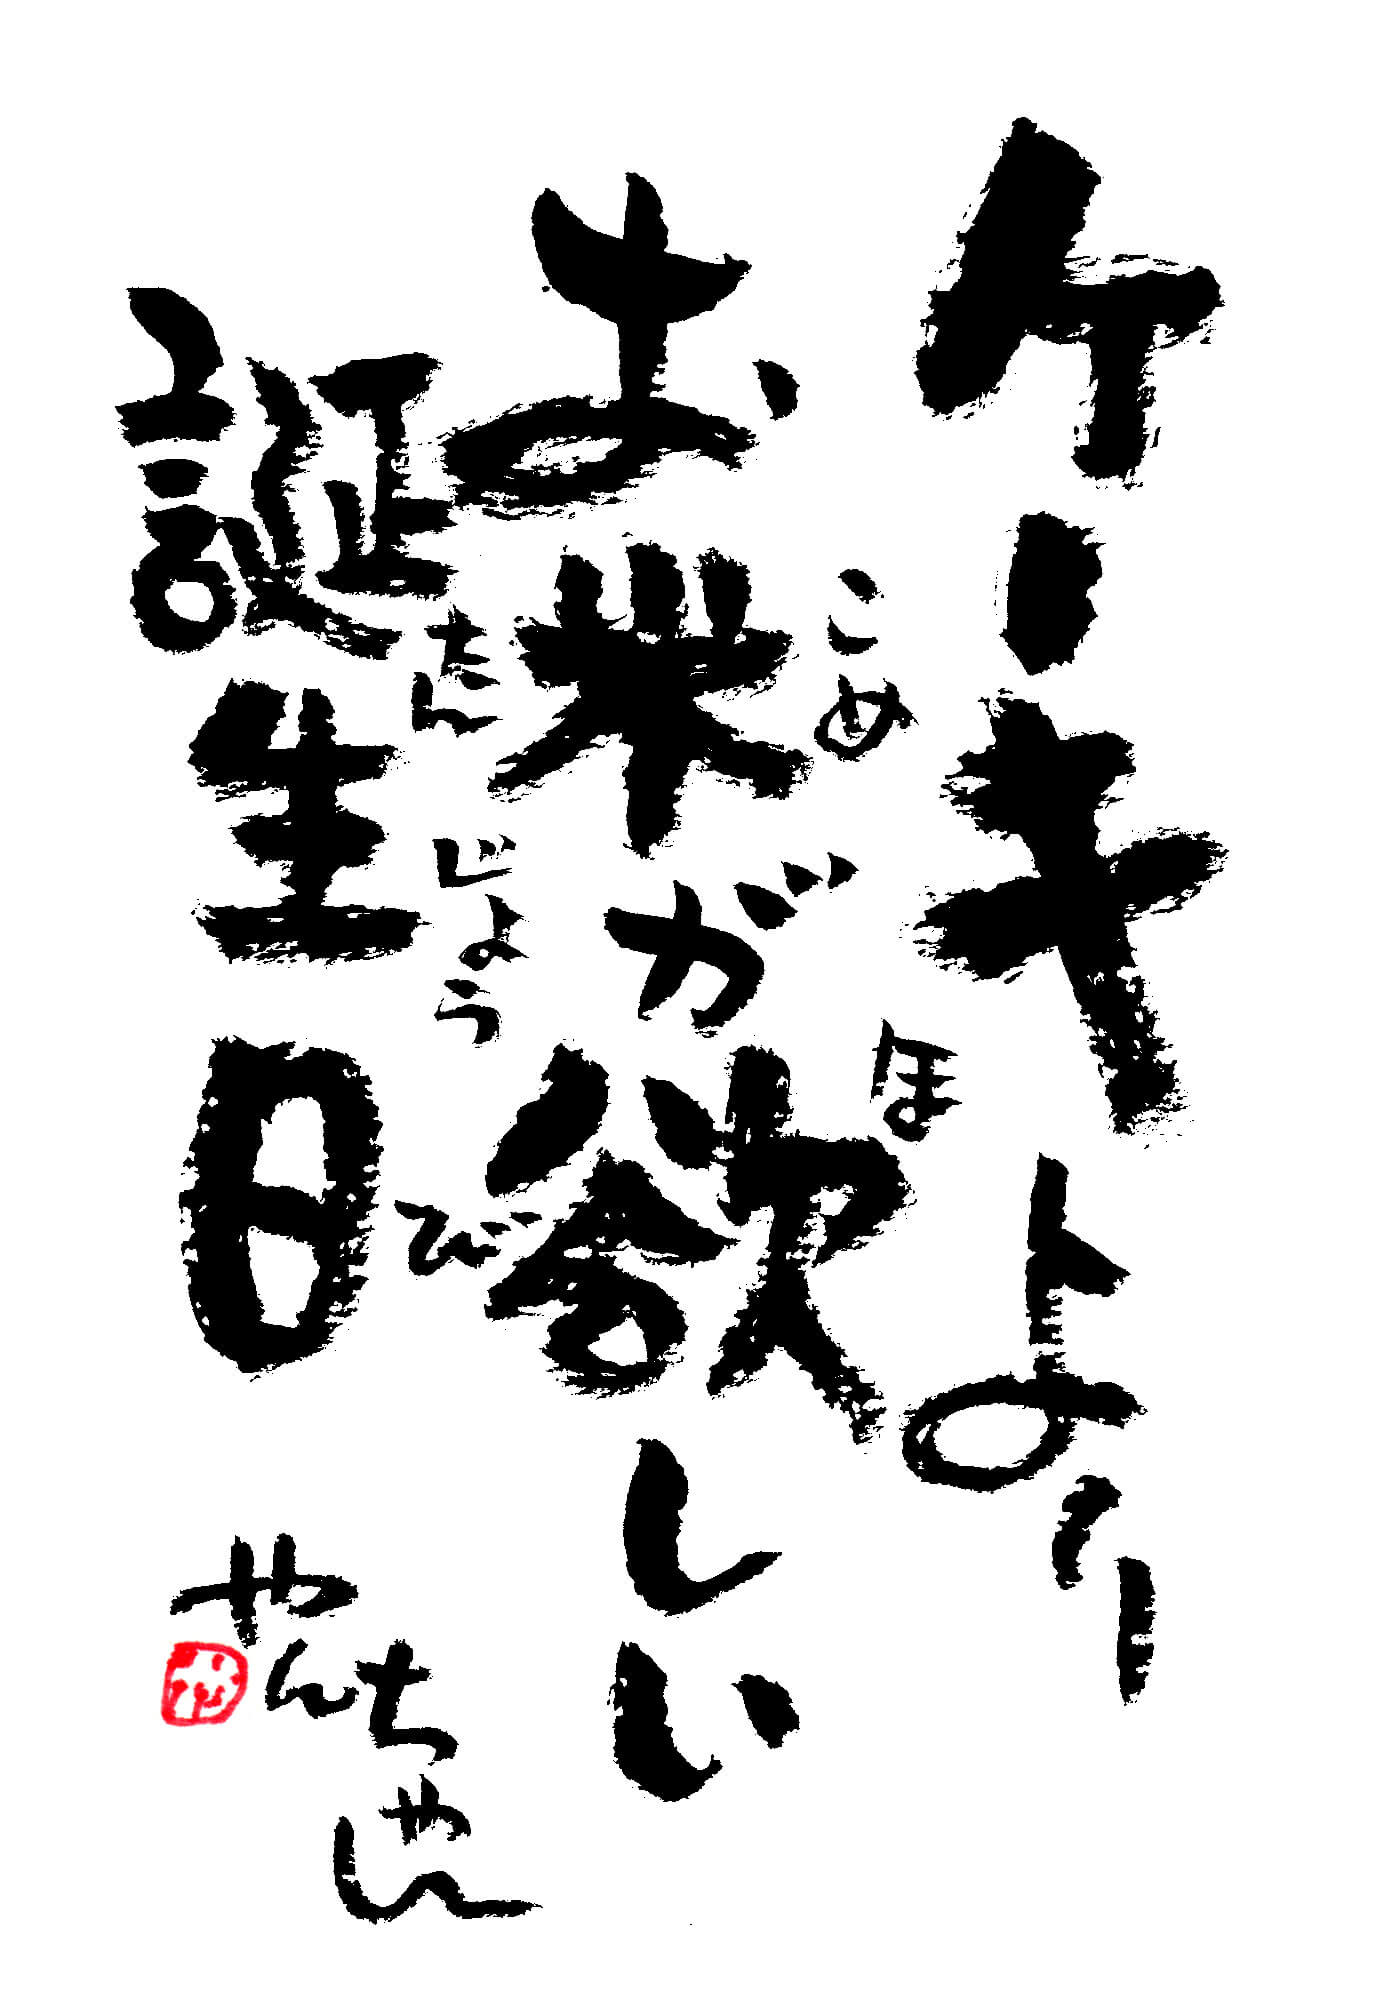 ケーキより
お米が欲しい
こめ
ほ
誕生日
たん
じょう
び
やんちゃん